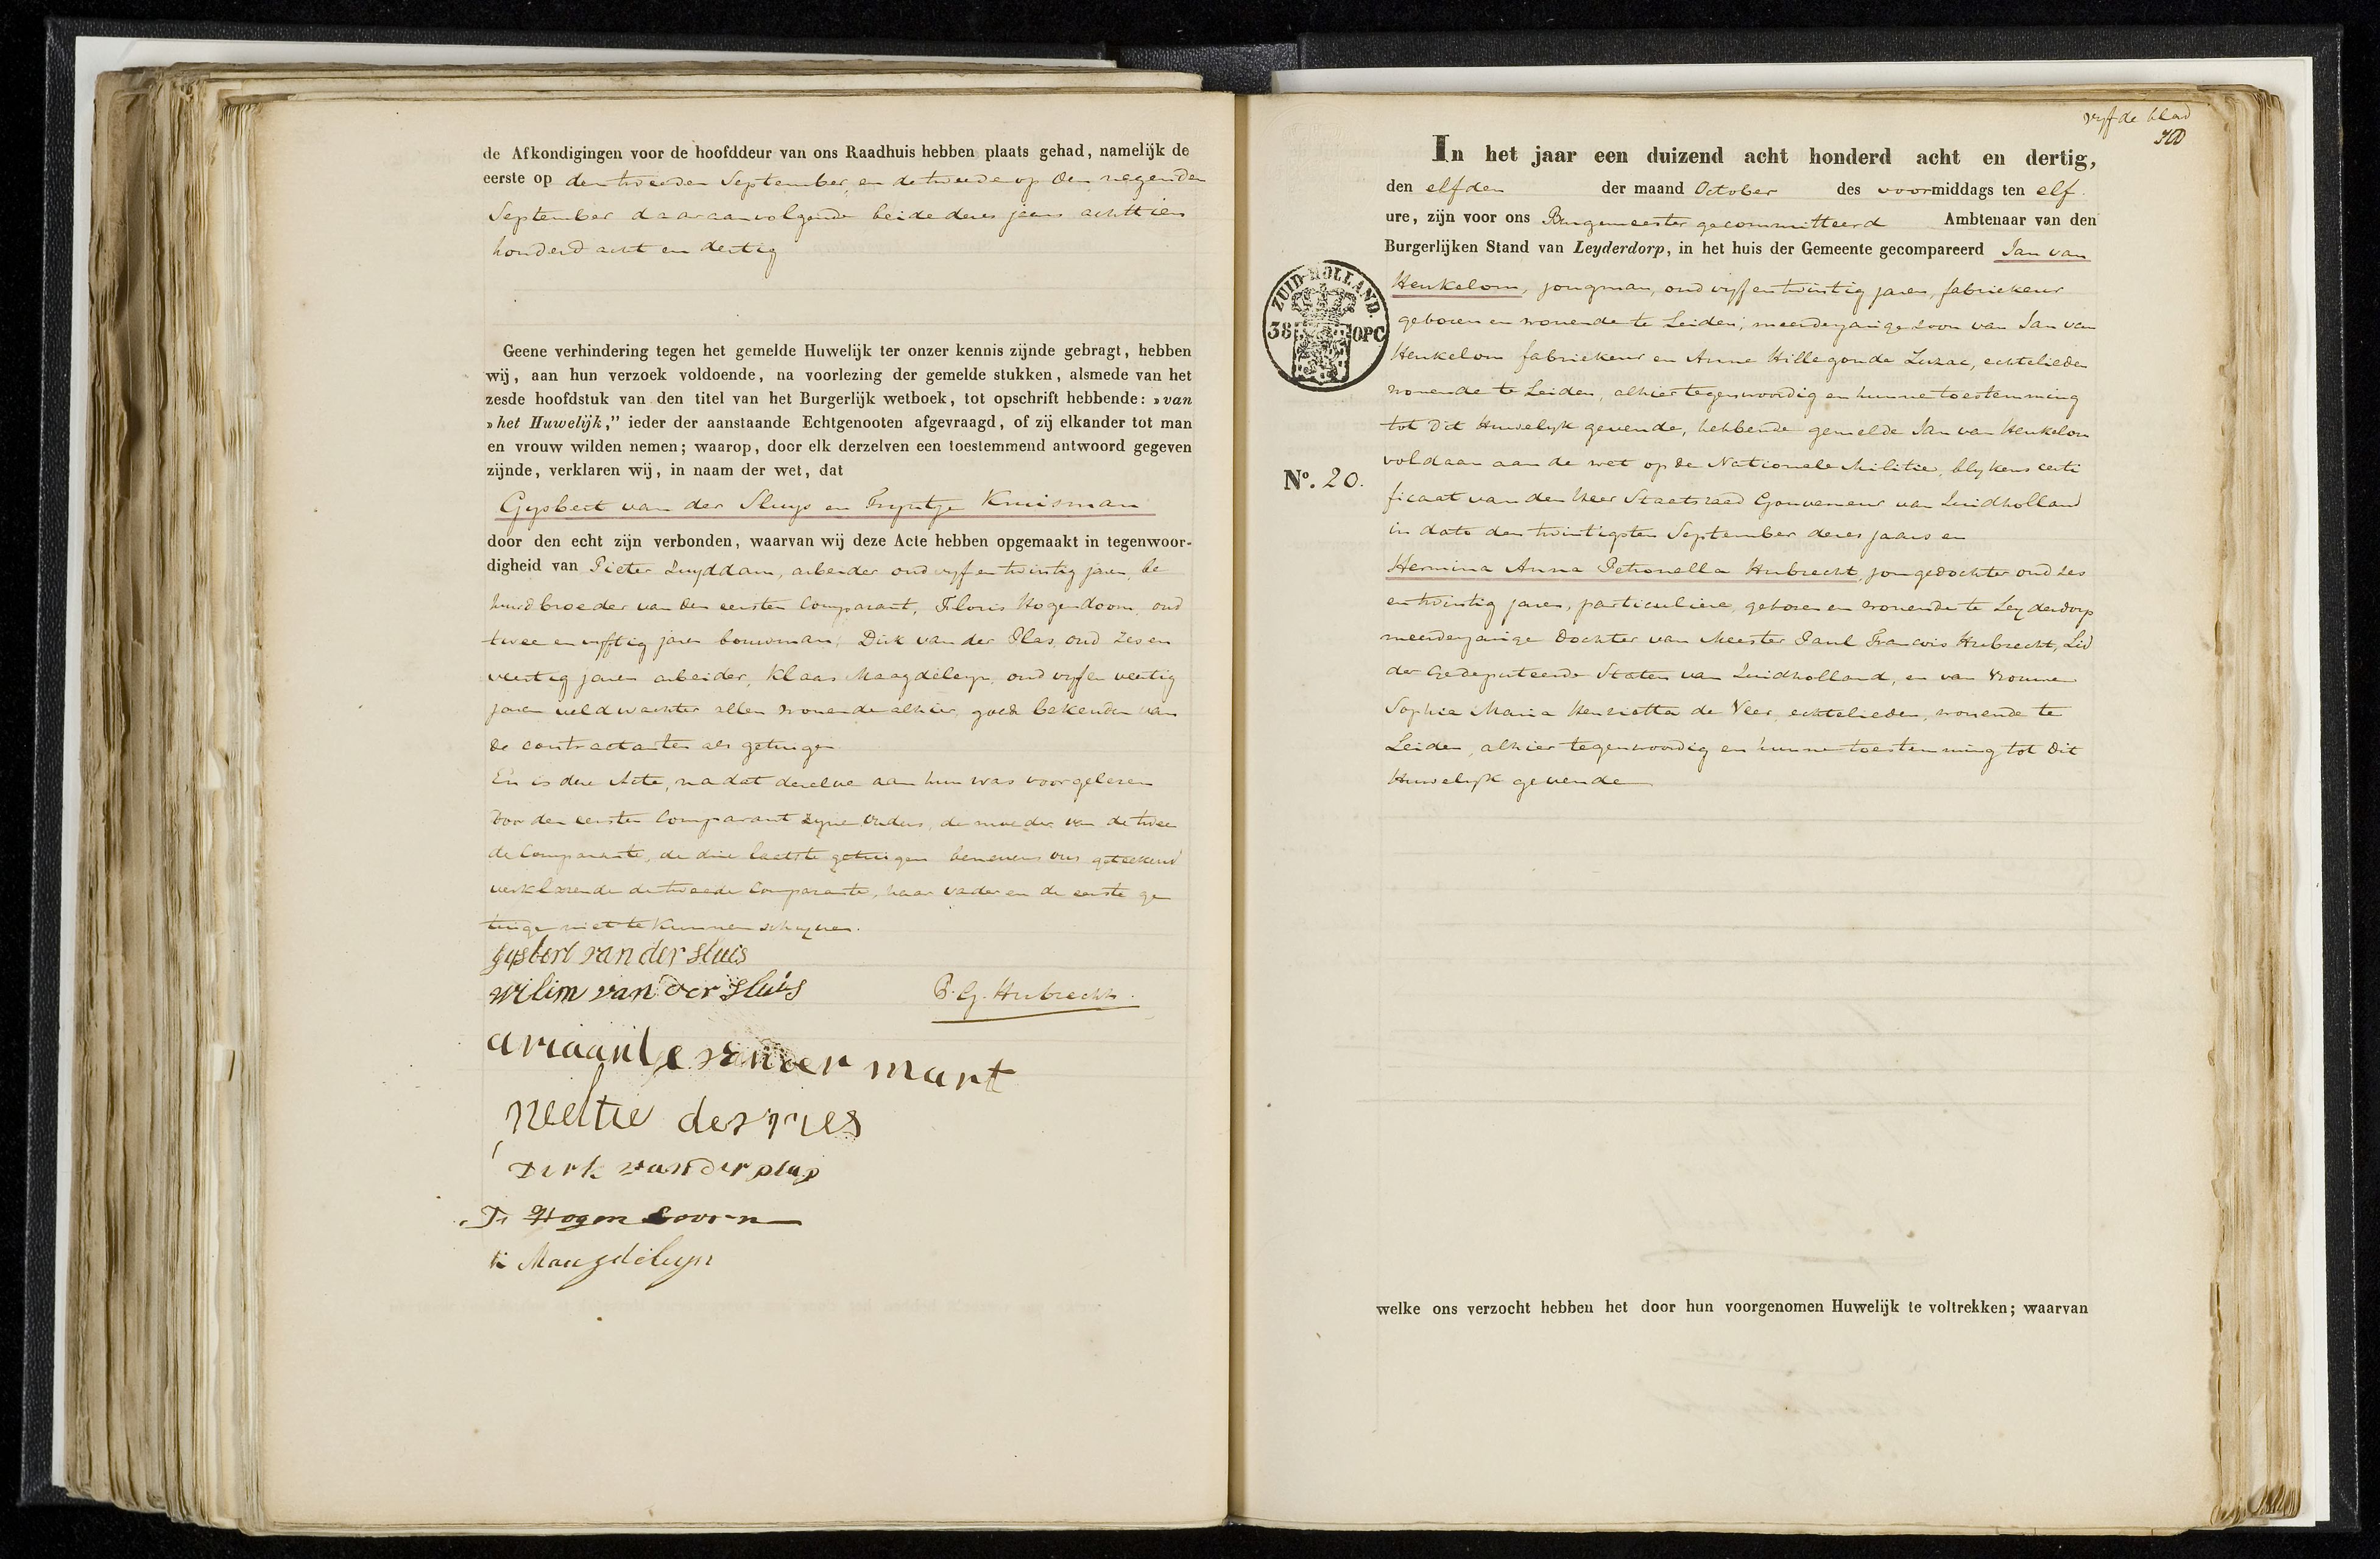 de Afkondigingen voor de hoofddeur van ons Raadhuis hebben plaats gehad, namelijk de
eerste op den tweeden September, en de tweede op den negenden
September daaraanvolgende beide dezes jaars achttien
honderd acht en dertig
Geene verhindering tegen het gemelde Huwelijk ter onzer kennis zijnde gebragt, hebben
wij, aan hun verzoek voldoende, na voorlezing der gemelde stukken, alsmede van het
zesde hoofdstuk van den titel van het Burgerlijk wetboek, tot opschrift hebbende: »van
»het Huwelijk,” ieder der aanstaande Echtgenooten afgevraagd, of zij elkander tot man
en vrouw wilden nemen; waarop, door elk derzelven een toestemmend antwoord gegeven
zijnde, verklaren wij, in naam der wet, dat
Gysbert van der Sluys en Tryntje Kruisman
door den echt zijn verbonden, waarvan wij deze Acte hebben opgemaakt in tegenwoor-
digheid van Pieter Zuyddam, arbeider oud vyf en twintig jaren, be
huwd broeder van den eersten Comparant, Floris Hogendoorn, oud
twee en vyftig jaren bouwman, Dirk van der Plas, oud zes en
veertig jaren arbeider, Klaas Maagdeleyn, oud vyf en veertig
jaren veldwachter allen wonende alhier, goede bekenden van
de contractanten als getuigen
En is deze Acte, na dat dezelve aan hun was voorgelezen
door den eersten Comparant zyne Ouders, de moeder van de twee
de Comparante, de drie laatste getuigen benevens ons geteekend
verklarende de tweede Comparante, haar vader en de eerste ge
tuige niet te kunnen schryven.
gysbert van der sluis
wilim van der sluis
P. G. Hubrecht.
ariaantje van der mart
neeltie de vries
Dirk van der plas
F. Hogendoorn
K Maagdeleyn
vyfde blad
In het jaar een duizend acht honderd acht en dertig,
den elfden der maand October des voormiddags ten elf
ure, zijn voor ons Burgemeester gecommitteerd Ambtenaar van den
Burgerlijken Stand van Leyderdorp, in het huis der Gemeente gecompareerd Jan van
Heukelom, jongman, oud vyf en twintig jaren, fabriekeur
geboren en wonende te Leiden, meerderjarige zoon van Jan van
Heukelom fabriekeur en Anne Hillegonda Luzac, echtelieden
wonende te Leiden, alhier tegenwoordig en hunne toestemming
tot dit Huwelyk gevende, hebbende gemelde Jan van Heukelom
voldaan aan de wet op de Nationale Militie, blykens certi
ficaat van den Heer Staatsraad Gouverneur van Zuidholland
in dato den twintigsten September dezes jaars en
Hermina Anna Petronella Hubrecht, jongedochter oud zes
en twintig jaren, particuliere, geboren en wonende te Leyderdorp
meerderjarige dochter van Meester Paul François Hubrecht, Lid
der Gedeputeerde Staten van Zuidholland, en van Vrouwe
Sophia Maria Henrietta de Veer, echtelieden, wonende te
Leiden, alhier tegenwoordig en hunne toestemming tot dit
Huwelyk gevende
ZUID-HOLLAND.
38 OPC
No. 20.
welke ons verzocht hebben het door hun voorgenomen Huwelijk te voltrekken; waarvan